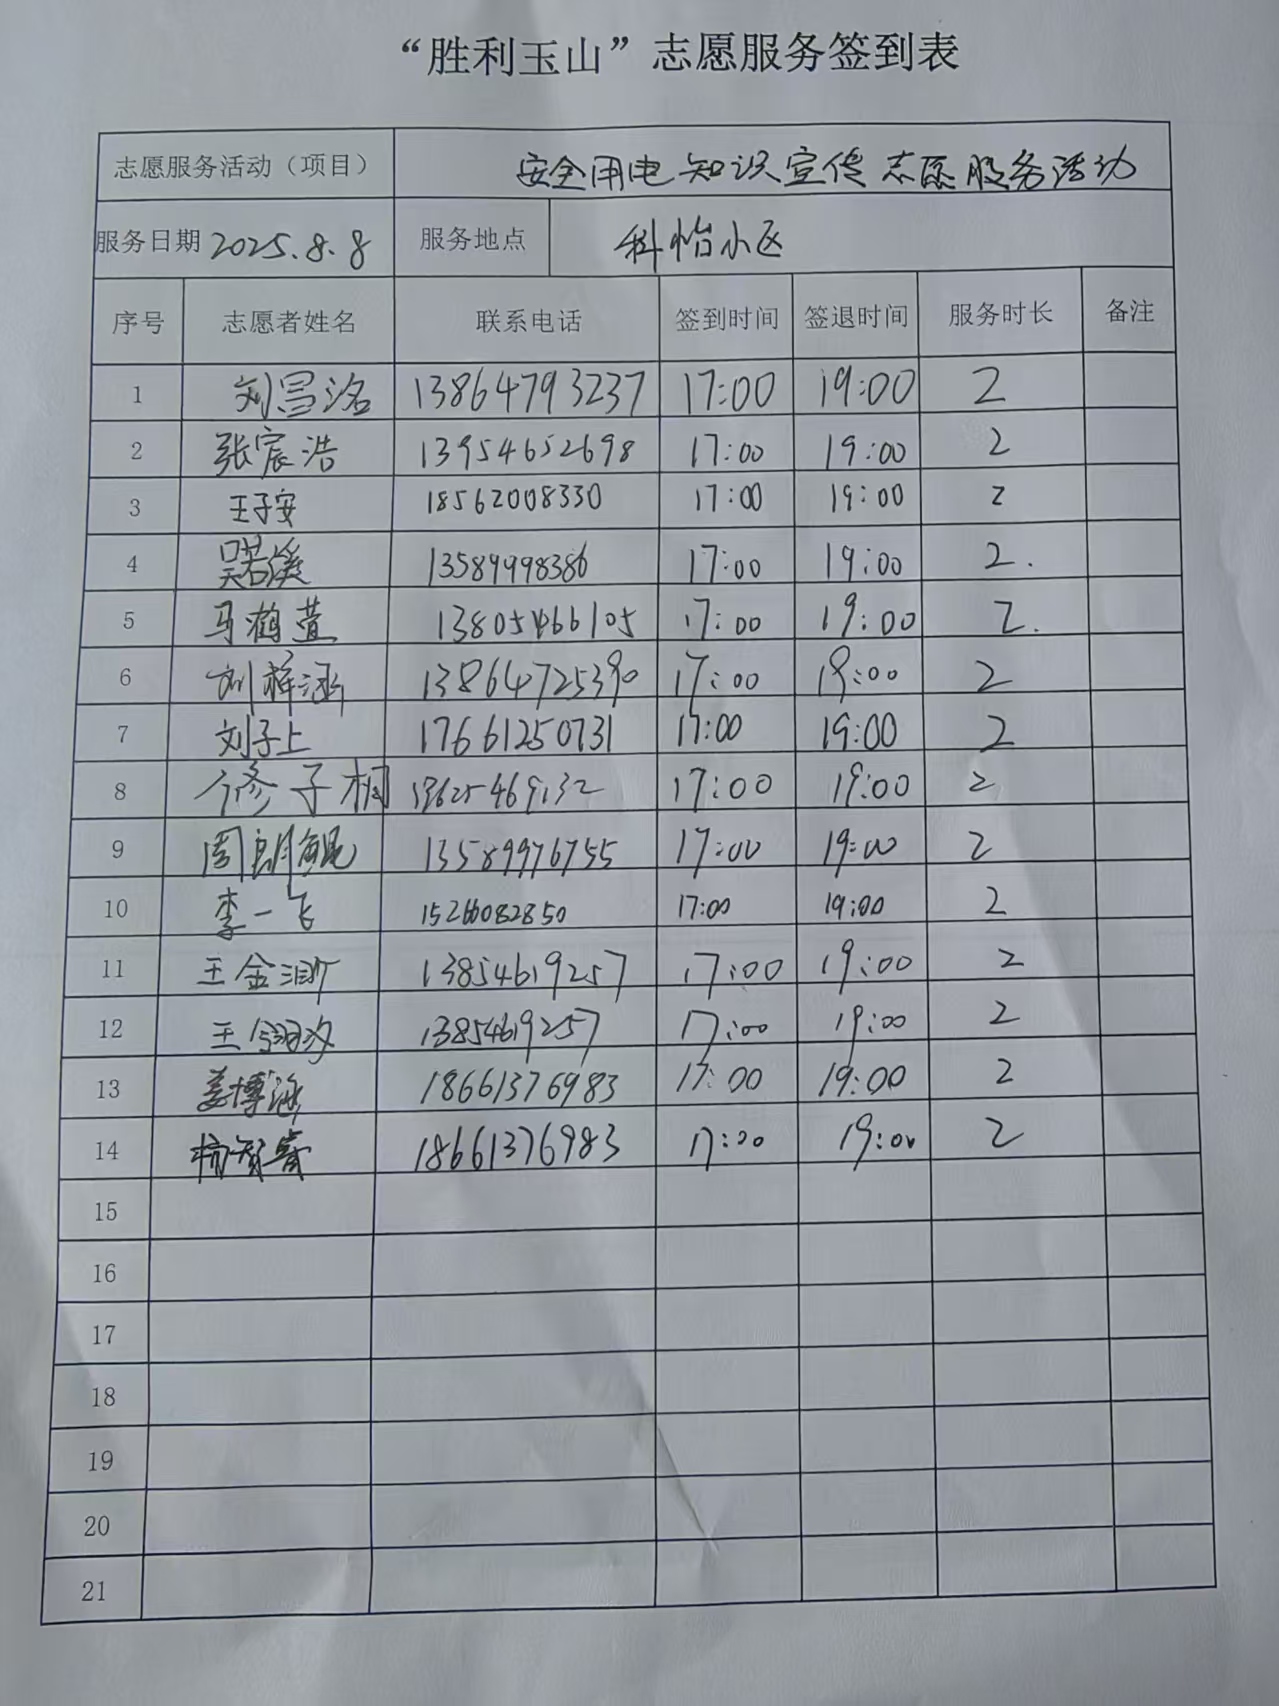 “胜利玉山”志愿服务签到表
志愿服务活动（项目） 安全用电知识宣传志愿服务活动
服务日期 2025.8.8 服务地点 科怡小区
序号 志愿者姓名 联系电话 签到时间 签退时间 服务时长 备注
1 刘昌洺 13864793237 17:00 19:00 2
2 张宸浩 13954652698 17:00 19:00 2
3 王子安 18562008330 17:00 19:00 2
4 吴若溪 13589998386 17:00 19:00 2.
5 马鹤萱 13805466105 17:00 19:00 2.
6 刘梓涵 13864725390 17:00 19:00 2
7 刘子上 17661250731 17:00 19:00 2
8 修子桐 13625469132 17:00 19:00 2
9 周朗鲲 13589976755 17:00 19:00 2
10 李一飞 15266082850 17:00 19:00 2
11 王金 13854619257 17:00 19:00 2
12 王 13854619257 17:00 19:00 2
13 姜博涵 18661376983 17:00 19:00 2
14 18661376983 17:00 19:00 2
15
16
17
18
19
20
21